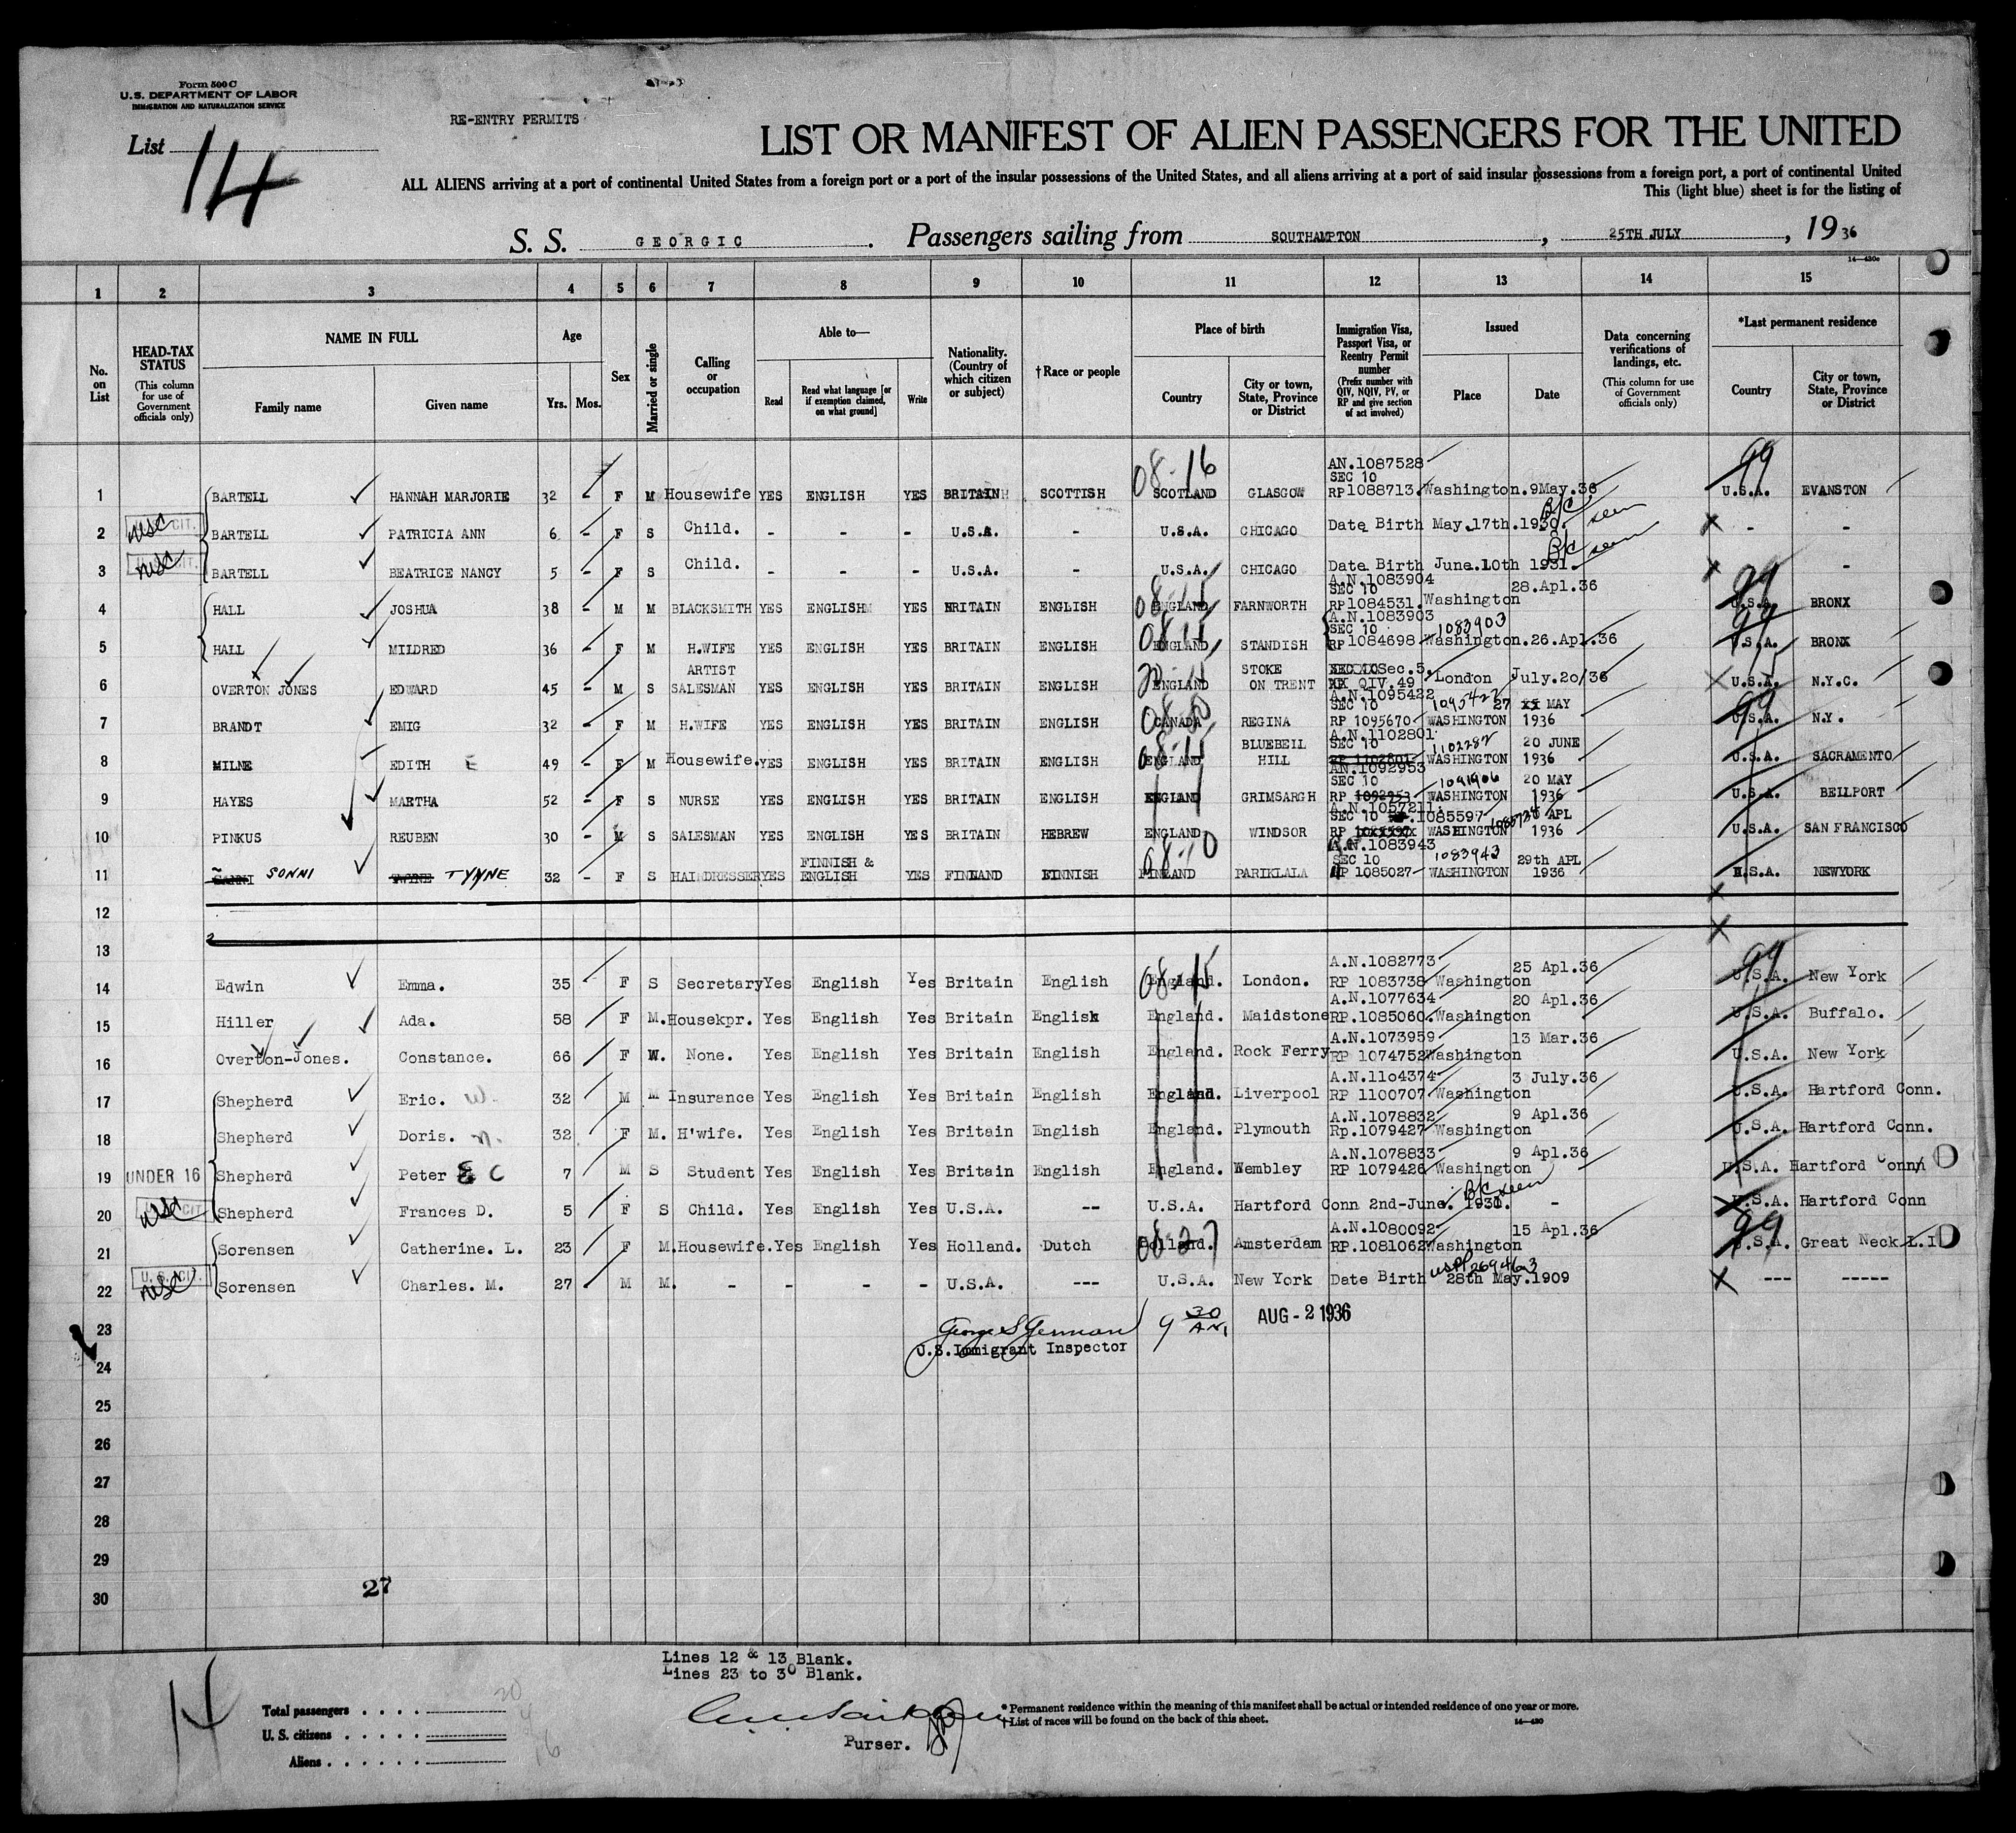 Form 500 C
U.S. DEPARTMENT OF LABOR
IMMIGRATION AND NATURALIZATION SERVICE
List 14
RE-ENTRY PERMITS
LIST OR MANIFEST OF ALIEN PASSENGERS FOR THE UNITED
ALL ALIENS arriving at a port of continental United States from a foreign port or a port of the insular possessions of the United States, and all aliens arriving at a port of said insular possessions from a foreign port, a port of continental United
This (light blue) sheet is for the listing of
S. S. GEORGIC . Passengers sailing from SOUTHAMPTON , 25TH JULY , 19 36
14—430c
1 2 3 4 5 6 7 8 9 10 11 12 13 14 15
No. on List
HEAD-TAX STATUS (This column for use of Government officials only)
NAME IN FULL Family name Given name
Age Yrs. Mos.
Sex
Married or single
Calling or occupation
Able to— Read Read what language [or if exemption claimed, on what ground] Write
Nationality. (Country of which citizen or subject)
†Race or people
Place of birth Country City or town, State, Province or District
Immigration Visa, Passport Visa, or Reentry Permit number (Prefix number with QIV, NQIV, PV, or RP and give section of act involved)
Issued Place Date
Data concerning verifications of landings, etc. (This column for use of Government officials only)
*Last permanent residence Country City or town, State, Province or District
1 BARTELL HANNAH MARJORIE 32 - F M Housewife YES ENGLISH YES BRITAIN SCOTTISH 08-16 SCOTLAND GLASGOW AN.1087528 SEC 10 RP1088713. Washington. 9May.36 99 U.S.A. EVANSTON
2 BARTELL PATRICIA ANN 6 - F S Child. - - - U.S.A. - U.S.A. CHICAGO Date Birth May.17th.1930. B/C seen X - -
3 BARTELL BEATRICE NANCY 5 - F S Child. - - - U.S.A. - U.S.A. CHICAGO Date Birth June.10th 1931. B/C seen X -
4 HALL JOSHUA 38 - M M BLACKSMITH YES ENGLISH YES BRITAIN ENGLISH 08-15 ENGLAND FARNWORTH A.N.1083904 SEC 10 RP1084531. Washington 28.Apl.36 99 U.S.A. BRONX
5 HALL MILDRED 36 - F M H.WIFE YES ENGLISH YES BRITAIN ENGLISH ENGLAND STANDISH A.N.1083903 SEC 10 1083903 RP 1084698 Washington. 26.Apl.36 99 U.S.A. BRONX
6 OVERTON JONES EDWARD 45 - M S ARTIST SALESMAN YES ENGLISH YES BRITAIN ENGLISH ENGLAND STOKE ON TRENT Sec.5. QIV.49 London July.20/36 X U.S.A. N.Y.C.
7 BRANDT EMIG 32 - F M H.WIFE YES ENGLISH YES BRITAIN ENGLISH CANADA REGINA A.N.1095422 SEC 10 1095422 RP 1095670 WASHINGTON 27 MAY 1936 99 U.S.A. N.Y.
8 MILNE EDITH E 49 - F M Housewife. YES ENGLISH YES BRITAIN ENGLISH ENGLAND BLUEBELL HILL A.N.1102801 SEC 10 1102282 RP 1102801 WASHINGTON 20 JUNE 1936 U.S.A. SACRAMENTO
9 HAYES MARTHA 52 - F S NURSE YES ENGLISH YES BRITAIN ENGLISH ENGLAND GRIMSARGH AN.1092953 SEC 10 1091906 RP 1092953 WASHINGTON 20 MAY 1936 U.S.A. BELLPORT
10 PINKUS REUBEN 30 - M S SALESMAN YES ENGLISH YES BRITAIN HEBREW ENGLAND WINDSOR A.N.1057211. SEC 10 1085597 RP WASHINGTON APL 1936 U.S.A. SAN FRANCISCO
11 SONNI TYYNE 32 - F S HAIRDRESSER YES FINNISH & ENGLISH YES FINLAND FINNISH FINLAND PARIKLALA A.N.1083943 SEC 10 1083943 RP 1085027 WASHINGTON 29th APL 1936 U.S.A. NEWYORK
12 X
13 X
14 Edwin Emma. 35 - F S Secretary Yes English Yes Britain English 08-15 England. London. A.N.1082773 RP 1083738 Washington 25 Apl.36 99 U.S.A. New York
15 Hiller Ada. 58 F M. Housekpr. Yes English Yes Britain English England. Maidstone A.N.1077634 RP.1085060. Washington 20 Apl.36 U.S.A. Buffalo.
16 Overton-Jones. Constance. 66 F W. None. Yes English Yes Britain English England. Rock Ferry A.N.1073959 RP 1074752 Washington 13 Mar.36 U.S.A. New York
17 Shepherd Eric. W. 32 M M Insurance Yes English Yes Britain English England. Liverpool A.N.1104374 RP 1100707 Washington 3 July.36 U.S.A. Hartford Conn.
18 Shepherd Doris. n. 32 F M. H'wife. Yes English Yes Britain English England. Plymouth A.N.1078832 Rp.1079427 Washington 9 Apl.36 U.S.A. Hartford Conn.
19 UNDER 16 Shepherd Peter C 7 M S Student Yes English Yes Britain English England. Wembley A.N.1078833 RP 1079426 Washington 9 Apl.36 U.S.A. Hartford Conn
20 Shepherd Frances D. 5 F S Child. Yes English Yes U.S.A. -- U.S.A. Hartford Conn 2nd-June. 1931. B/C seen - U.S.A. Hartford Conn
21 Sorensen Catherine. L. 23 F M. Housewife. Yes English Yes Holland. Dutch 08-27 Holland. Amsterdam A.N.1080092 RP.1081062 Washington 15 Apl.36 99 U.S.A. Great Neck L.I
22 U.S. CIT. Sorensen Charles. M. 27 M M. - - - U.S.A. --- U.S.A. New York Date Birth 28th May.1909 X --- -----
23 George S German 9 30 A.M. AUG - 2 1936
U.S. Immigrant Inspector
24
25
26
27
28
29
30
27
Lines 12 & 13 Blank.
Lines 23 to 30 Blank.
14
Total passengers . . . . 20
U. S. citizens . . . . . 4
Aliens . . . . . . 16
Purser.
* Permanent residence within the meaning of this manifest shall be actual or intended residence of one year or more.
† List of races will be found on the back of this sheet.
14—430